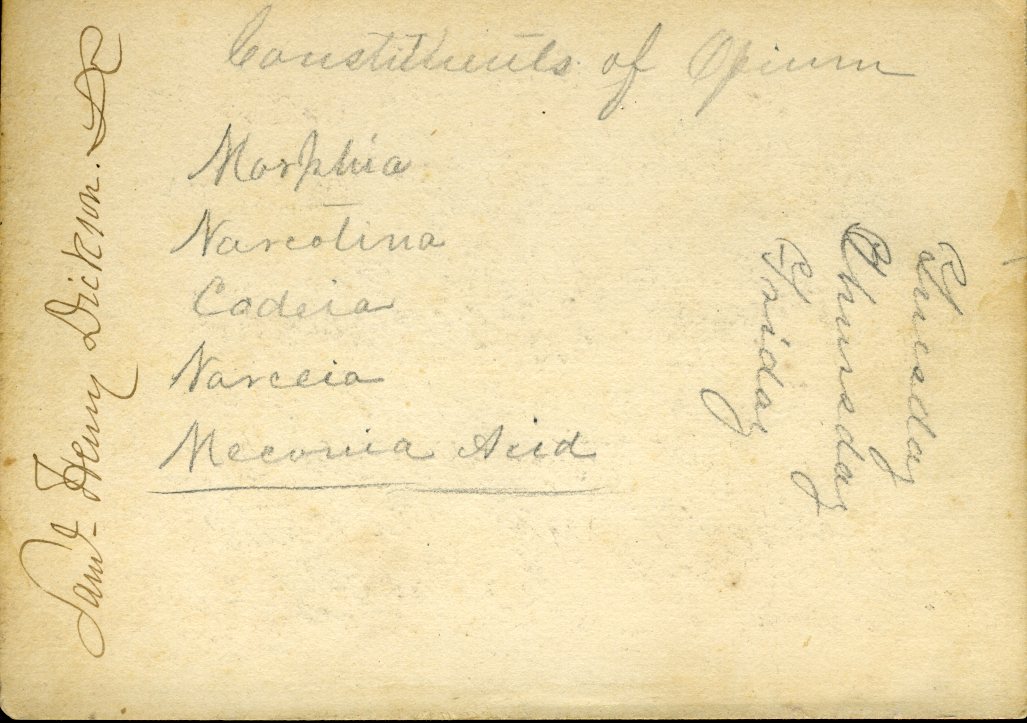 Constituents of Opium
Morphia
Narcotina
Codeia
Narceia
Meconia Acid
Saml. Henry Dickson.
Tuesday
Thursday
Friday